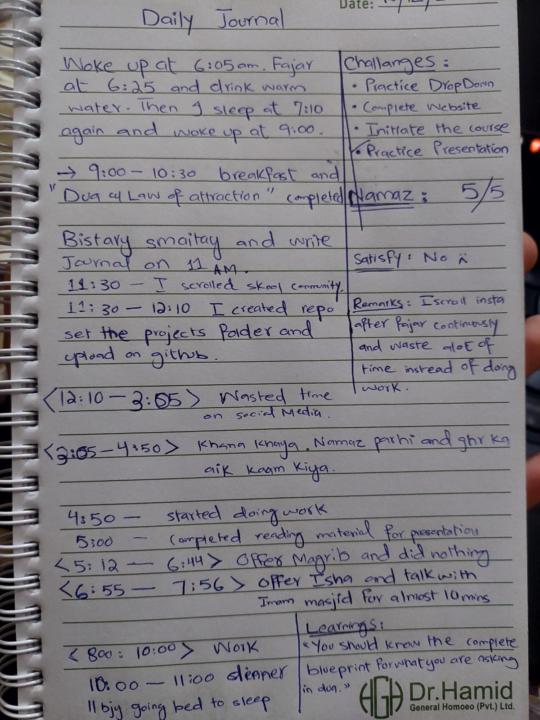 Date:
Daily Journal
Woke up at 6:05am. Fajar
at 6:25 and drink warm
water. Then I sleep at 7:10
again and woke up at 9:00.
→ 9:00 – 10:30 breakfast and
"Dua & Law of attraction" completed
Bistary smaitay and write
Journal on 11 AM.
11:30 – I scrolled skool community.
11:30 – 12:10 I created repo
set the projects folder and
upload on github.
Challanges:
• Practice DropDown
• Complete Website
• Initiate the course
• Practice Presentation
Namaz: 5/5
Satisfy: No
Remarks: I scroll insta
after fajar continously
and waste alot of
time instead of doing
work.
<12:10 – 3:05> Wasted time
on social Media.
<3:05 – 4:50> Khana Khaya. Namaz parhi and ghr ka
aik kaam kiya.
4:50 — started doing work
5:00 – completed reading material for presentation
<5:12 – 6:44> Offer Magrib and did nothing
<6:55 – 7:56> Offer Isha and talk with
Imam masjid for almost 10 mins
<800: 10:00> Work
10:00 – 11:00 dinner
11 going bed to sleep
Learnings:
"You should know the complete
blueprint for what you are asking
in dua."
Dr.Hamid
General Homoeo (Pvt.) Ltd.